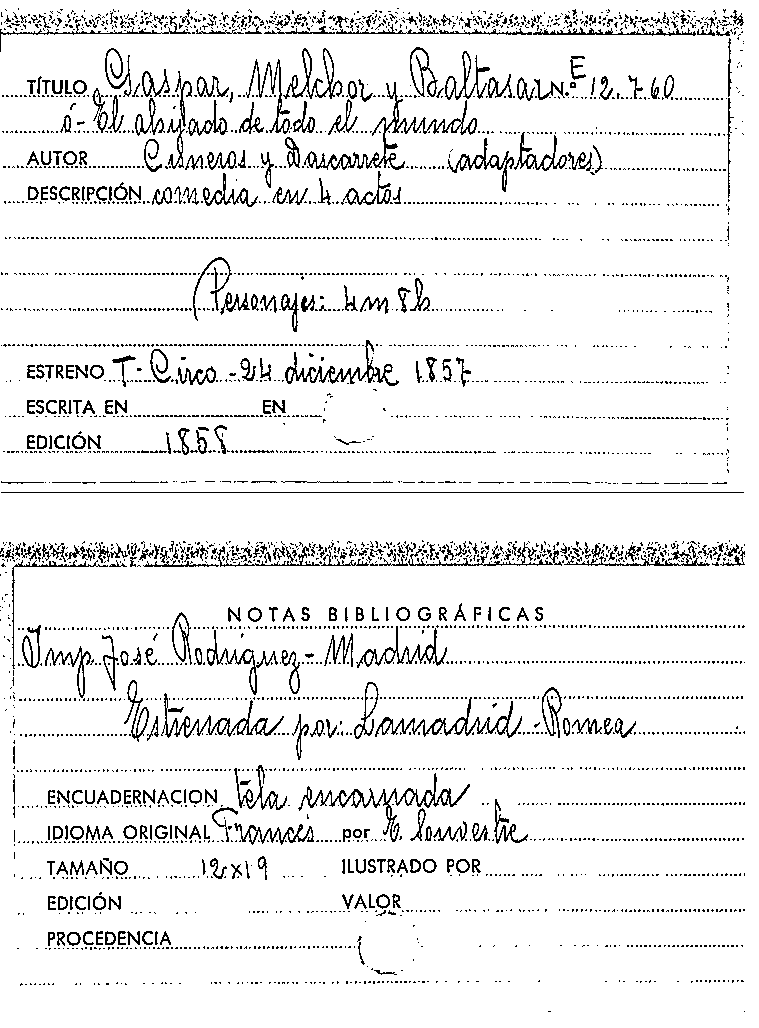 TÍTULO Gaspar, Melchor y Baltasar N.º E 12.760
ó- El ahijado de todo el mundo
AUTOR Cisneros y Dascarrete (adaptadores)
DESCRIPCIÓN comedia en 4 actos
Personajes: 4m 8h
ESTRENO T- Circo -24 diciembre 1857
ESCRITA EN EN
EDICIÓN 1858
NOTAS BIBLIOGRÁFICAS
Imp. José Rodríguez - Madrid
Estrenada por: Lamadrid - Romea
ENCUADERNACION tela encarnada
IDIOMA ORIGINAL Francés por E. Souvestre
TAMAÑO 12x19 ILUSTRADO POR
EDICIÓN VALOR
PROCEDENCIA